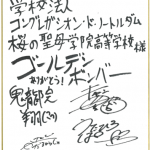 学校法人
コングレガシオン・ド・ノートルダム
桜の聖母学院高等学校様
ゴールデン
ボンバー
ありがとう!
鬼龍院
翔より